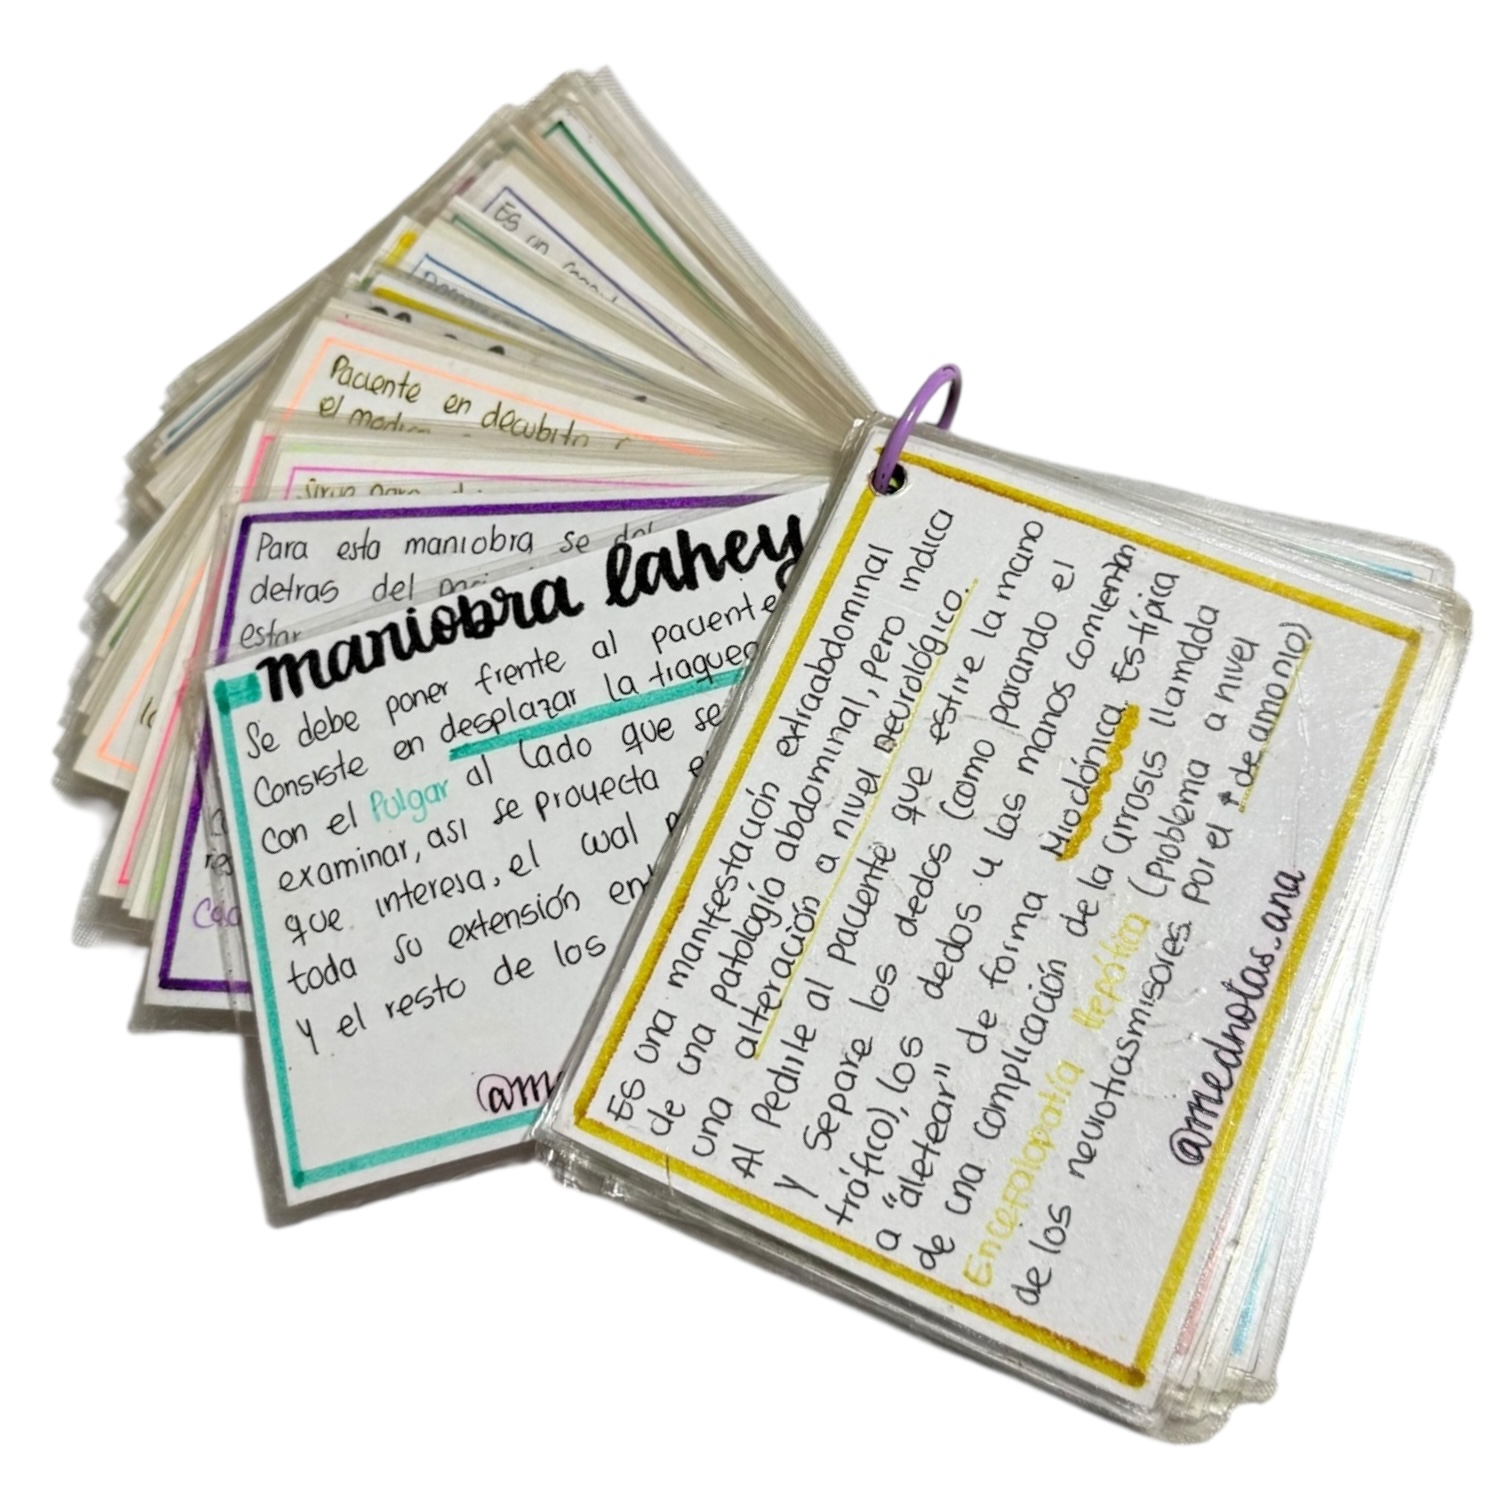 Es un
Paciente en decubito
el
Para esta maniobra se
detras del
estar
maniobra lahey
Se debe poner frente al paciente
Consiste en desplazar la traquea
con el Pulgar al lado que se
examinar, asi se proyecta
que interesa, el cual
toda su extensión
y el resto de los
Es una manifestación extraabdominal
de una patología abdominal, pero indica
una alteración a nivel neurológico.
Al Pedirle al paciente que estire la mano
y Separe los dedos (como parando el
tráfico), los dedos y las manos comienzan
a "aletear" de forma Mioclónica. Es típica
de una complicación de la cirrosis llamada
Encefalopatía Hepática (problema a nivel
de los neurotrasmisores por el ↑ de amonio)
@amednotas.ana